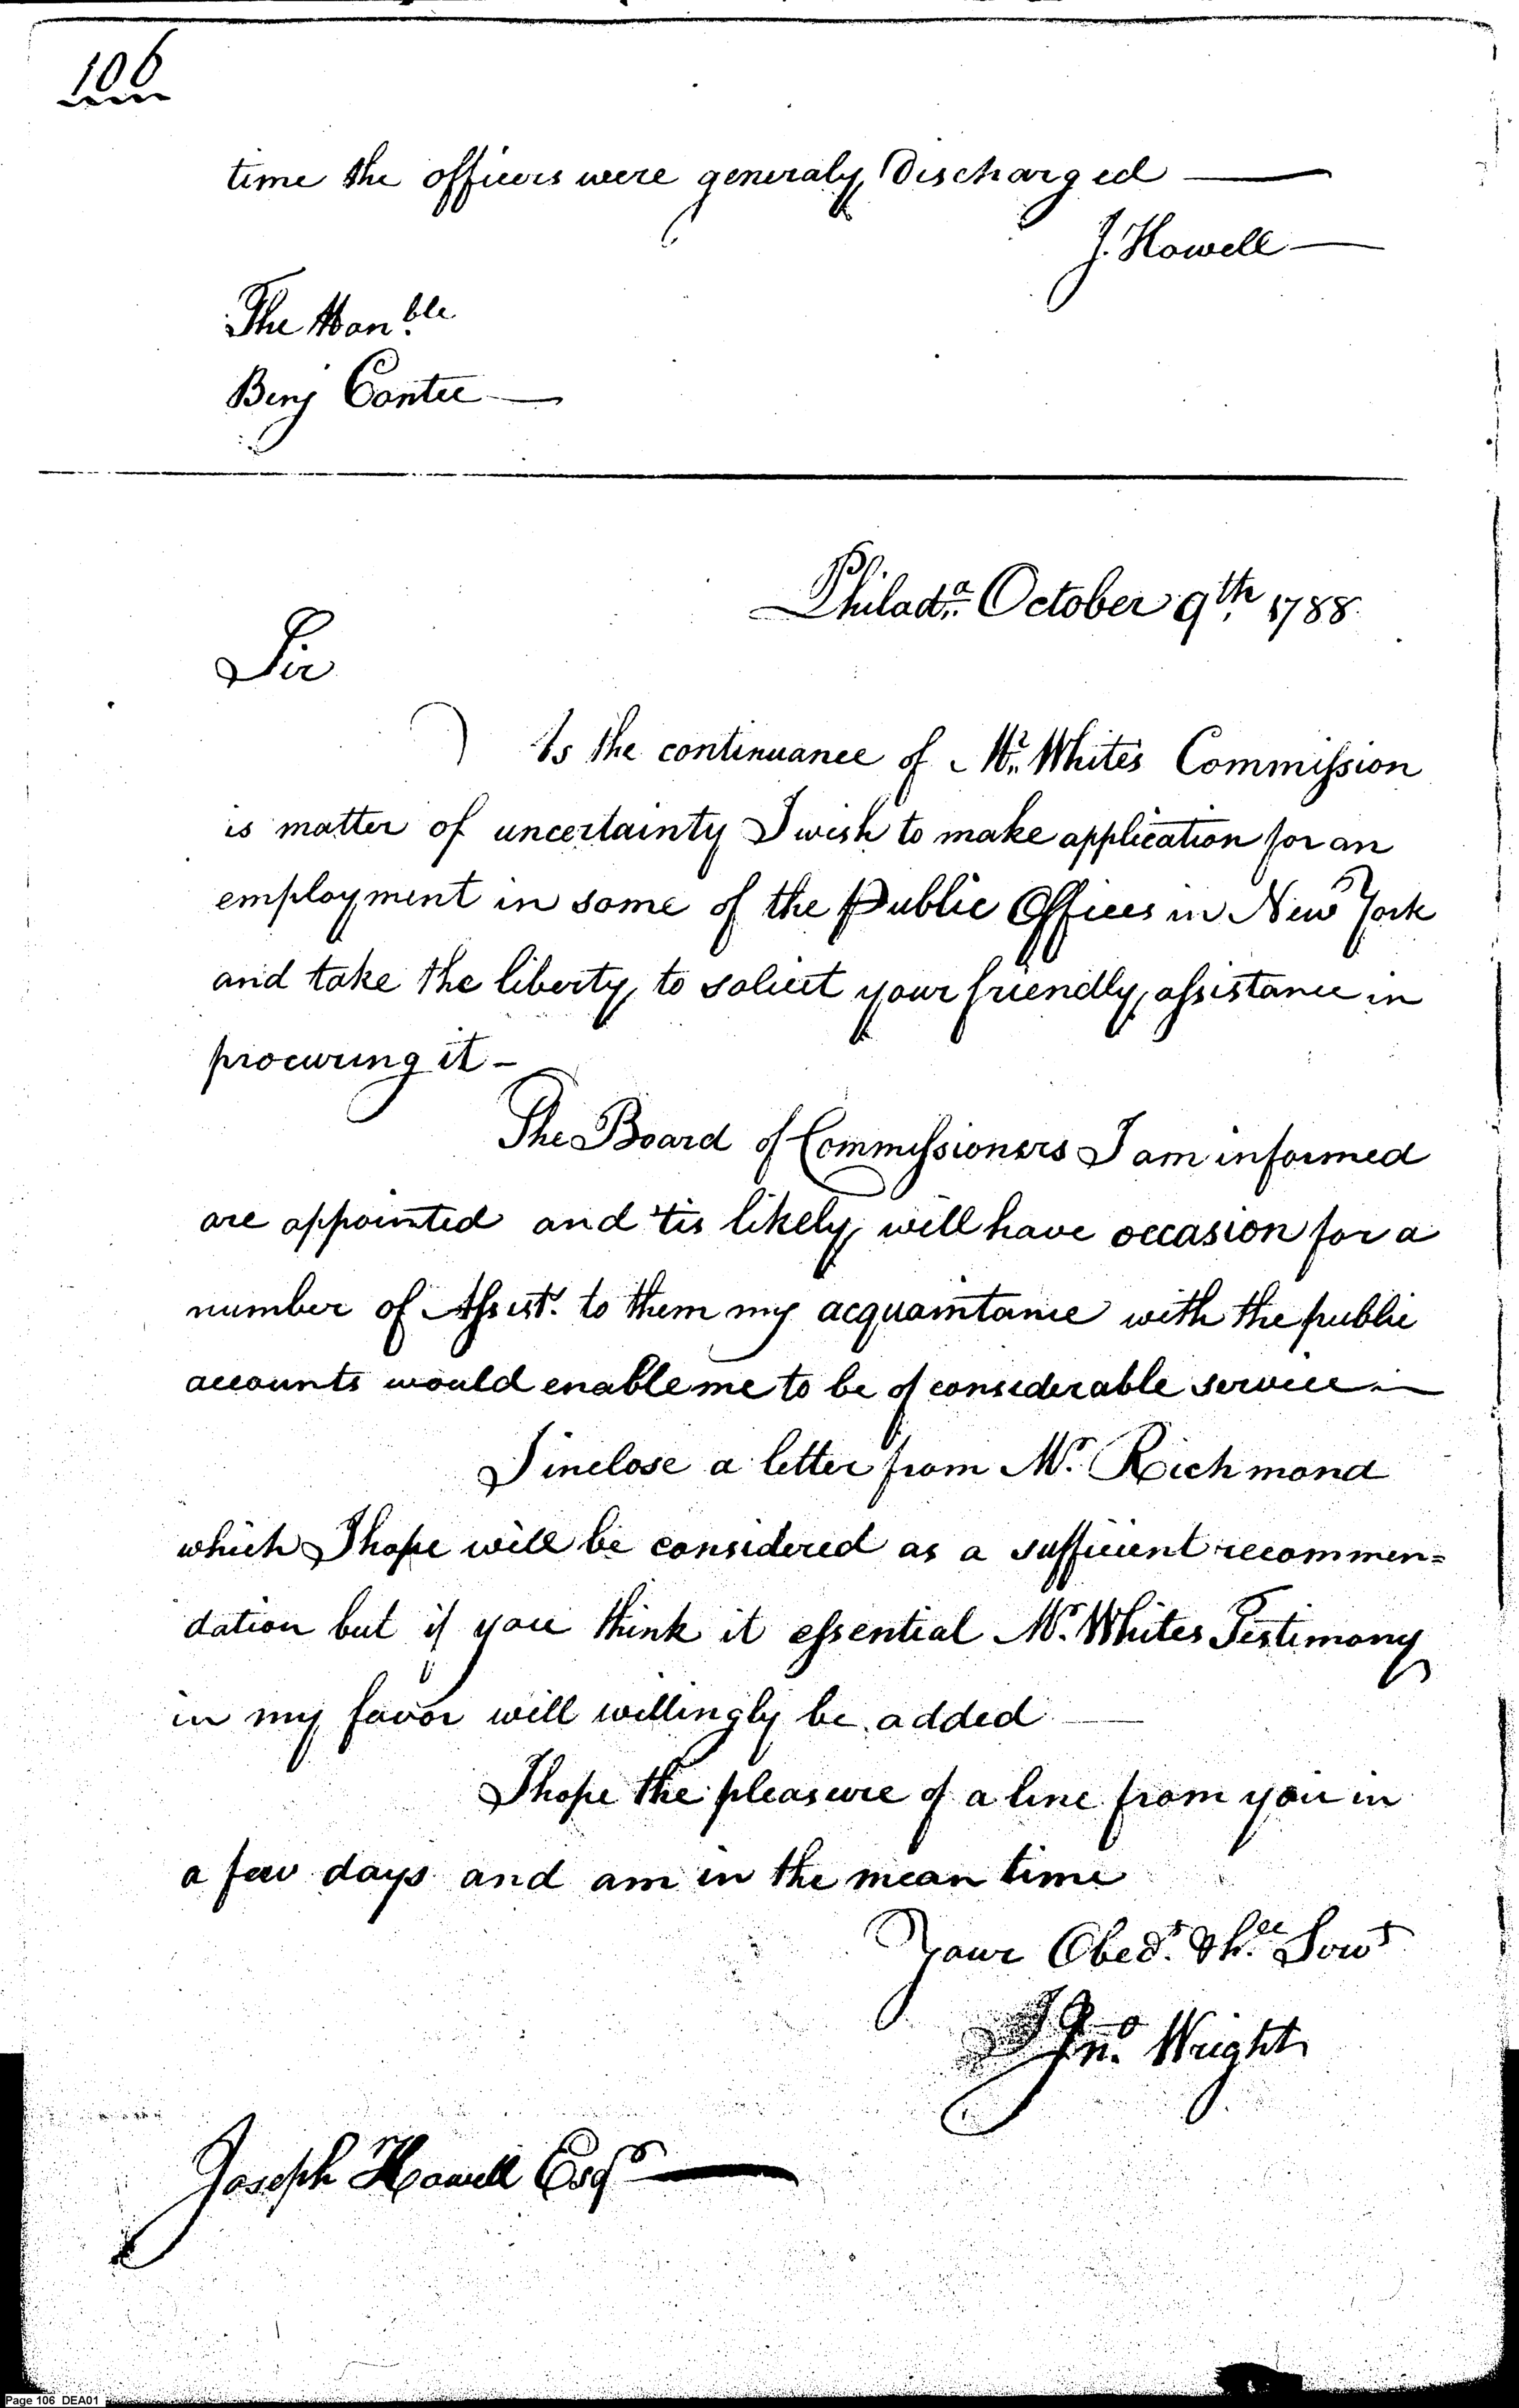 106
time the officers were generaly Discharged
J. Howell
The Honble
Benj Contee
Philada. October 9th 1788
Sir
As the continuance of Mr. White's Commission
is matter of uncertainty I wish to make application for an
employment in some of the Public Offices in New York
and take the liberty to solicit your friendly assistance in
procuring it –
The Board of Commissioners I am informed
are appointed and 'tis likely will have occasion for a
number of Assist.s to them my acquaintance with the public
accounts would enable me to be of considerable service —
I inclose a letter from Mr. Richmond
which I hope will be considered as a sufficient recommen=
dation but if you think it essential Mr. Whites Testimony
in my favor will willingly be added —
I hope the pleasure of a line from you in
a few days and am in the mean time
Your Obedt. & hble Servt
Jno. Wright
Joseph Howell Esqr
Page 106 DEA01